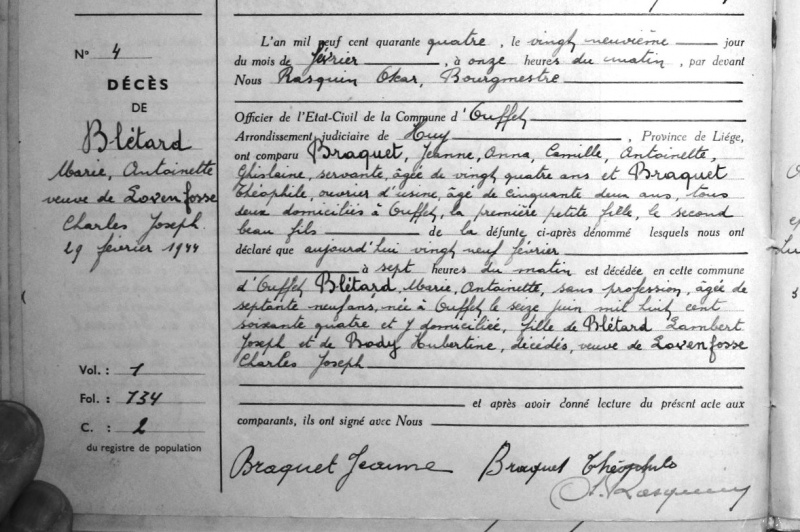 N° 4
DÉCÈS
DE
Blétard
Marie, Antoinette
veuve de Lovenfosse
Charles Joseph
29 février 1944
Vol. : 1
Fol. : 134
C. : 2
du registre de population
L'an mil neuf cent quarante quatre, le vingt neuvième jour
du mois de février, à onze heures du matin, par devant
Nous Rasquin Oscar, Bourgmestre
Officier de l'Etat-Civil de la Commune d'Ouffet
Arrondissement judiciaire de Huy, Province de Liége,
ont comparu Braquet, Jeanne, Anna, Camille, Antoinette,
Ghislaine, servante, âgée de vingt quatre ans et Braquet
Théophile, ouvrier d'usine, âgé de cinquante deux ans, tous
deux domiciliés à Ouffet, la première petite fille, le second
beau fils de la défunte ci-après dénommé lesquels nous ont
déclaré que aujourd'hui vingt neuf février
à sept heures du matin est décédée en cette commune
d'Ouffet Blétard, Marie, Antoinette, sans profession, âgée de
septante neuf ans, née à Ouffet le seize juin mil huit cent
soixante quatre et y domiciliée, fille de Blétard Lambert
Joseph et de Body Hubertine, décédés, veuve de Lovenfosse
Charles Joseph
et après avoir donné lecture du présent acte aux
comparants, ils ont signé avec Nous
Braquet Jeanne Braquet Théophile
O. Rasquin